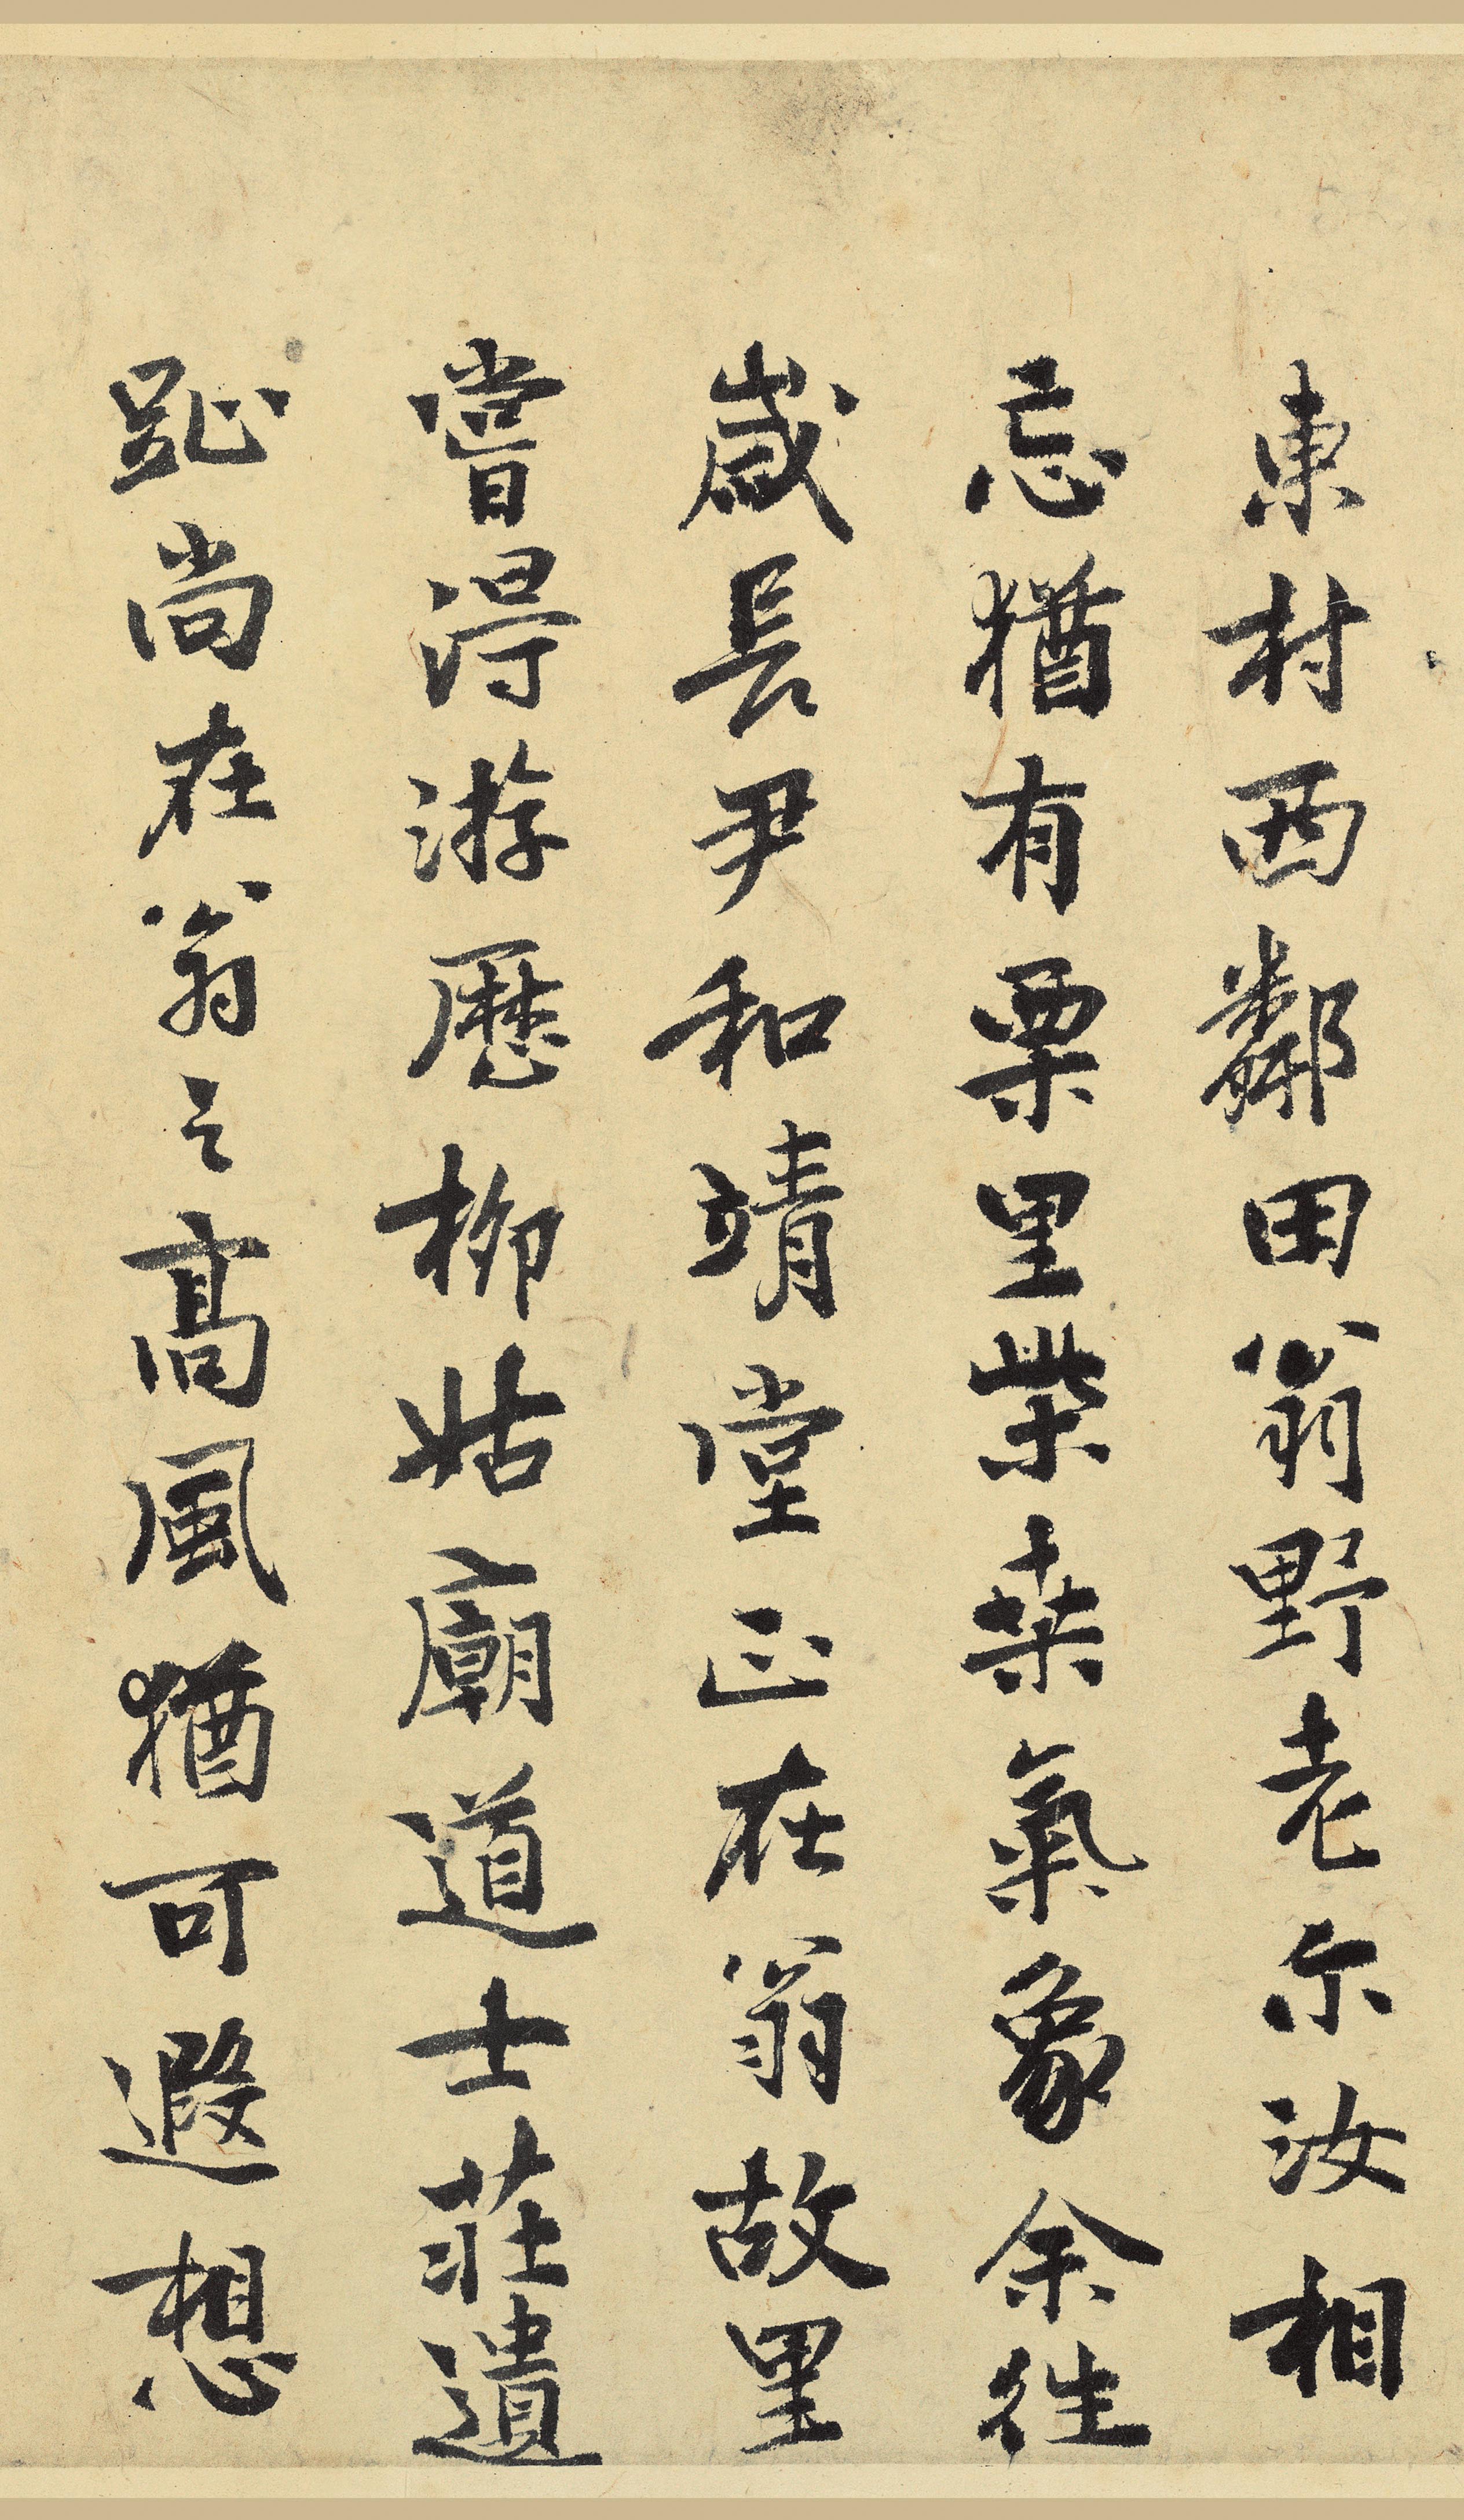 東村西鄰田翁野老尔汝相
忘猶有栗里柴桒氣象余往
歲長尹和靖堂正在翁故里
嘗淂游歷柳姑廟道士莊遺
趾尚在翁之髙風猶可遐想